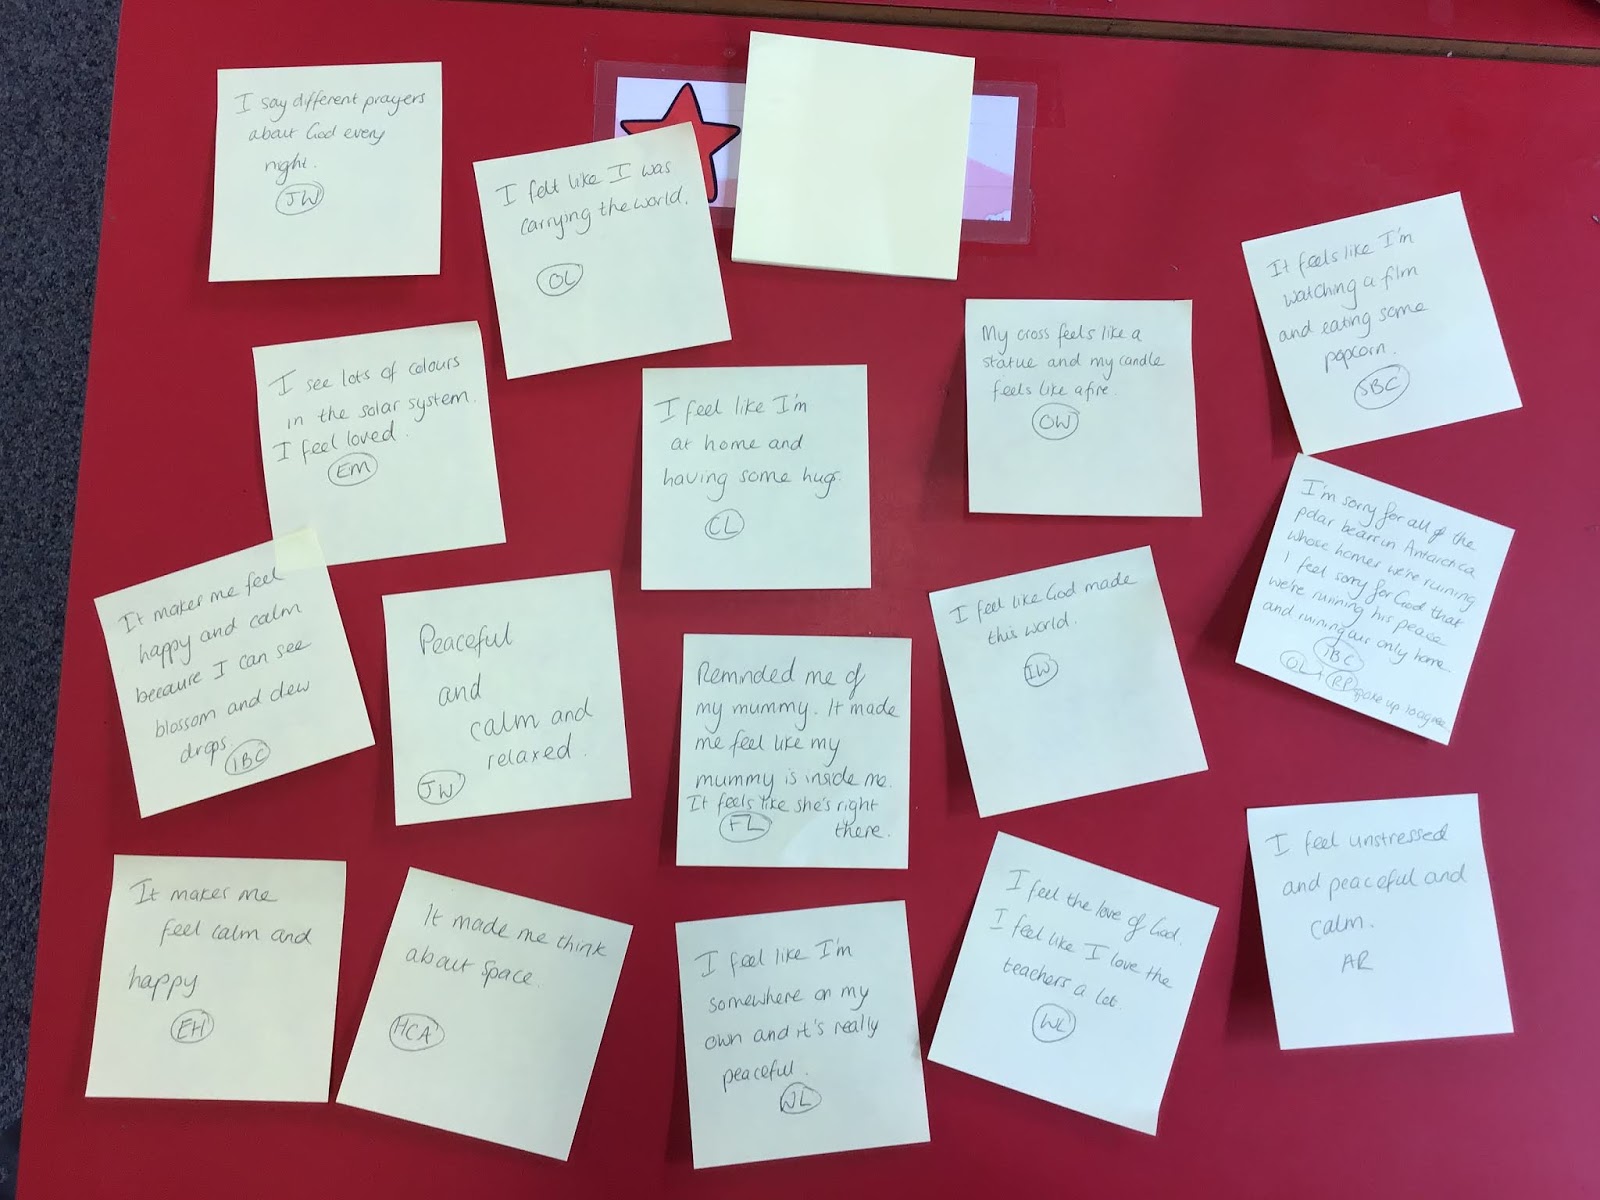 I say different prayers
about God every
night.
JW
I felt like I was
carrying the world.
OL
It feels like I'm
watching a film
and eating some
popcorn.
JBC
I see lots of colours
in the solar system.
I feel loved.
EM
I feel like I'm
at home and
having some hugs.
CL
My cross feels like a
statue and my candle
feels like a fire.
OW
I'm sorry for all of the
polar bears in Antarctica
whose homes we're ruining
I feel sorry for God that
we're ruining his peace
and ruining our only home.
IBC
OL + RP spoke up to agree
It makes me feel
happy and calm
because I can see
blossom and dew
drops.
IBC
Peaceful
and
calm and
relaxed.
JW
Reminded me of
my mummy. It made
me feel like my
mummy is inside me.
It feels like she's right
there.
FL
I feel like God made
this world.
IW
It makes me
feel calm and
happy
EH
It made me think
about space.
HCA
I feel like I'm
somewhere on my
own and it's really
peaceful.
WL
I feel the love of God.
I feel like I love the
teachers a lot.
WL
I feel unstressed
and peaceful and
calm.
AR